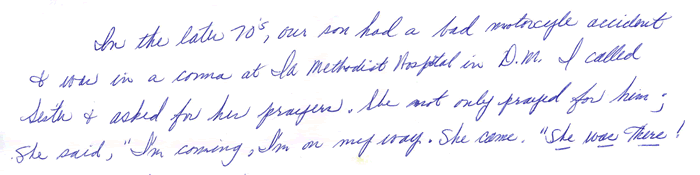 In the later 70's, our son had a bad motorcycle accident
& was in a coma at IA Methodist Hospital in D.M. I called
Sister & asked for her prayers. She not only prayed for him;
She said, "I'm coming, I'm on my way. She came. "She was There!